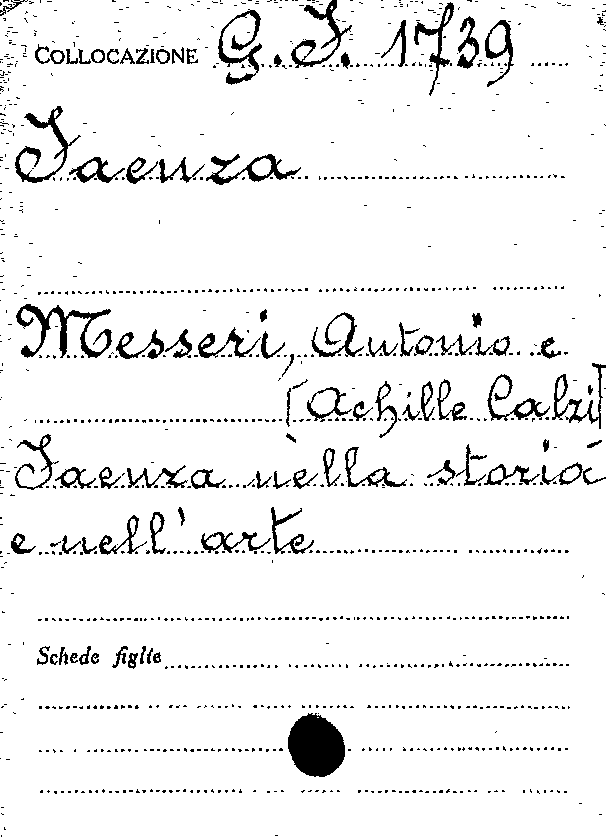 COLLOCAZIONE G. F. 1739
Faenza
Messeri, Antonio e
[Achille Calzi]
Faenza nella storia
e nell'arte
Schede figlie